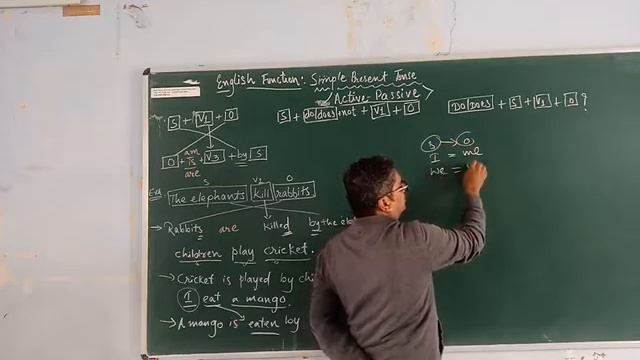 English Function: Simple Present Tense
Active-Passive
S + V1 + O
S + do/does + not + V1 + O
DO/DOES + S + V1 + O ?
O + am + V3 + by S
is
are
S → O
I = me
we =
S V1 O
Exa. The elephants kill rabbits
→ Rabbits are killed by the
children play cricket.
→ Cricket is played by
I eat a mango.
→ A mango is eaten by